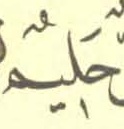 حَلِيمٌ